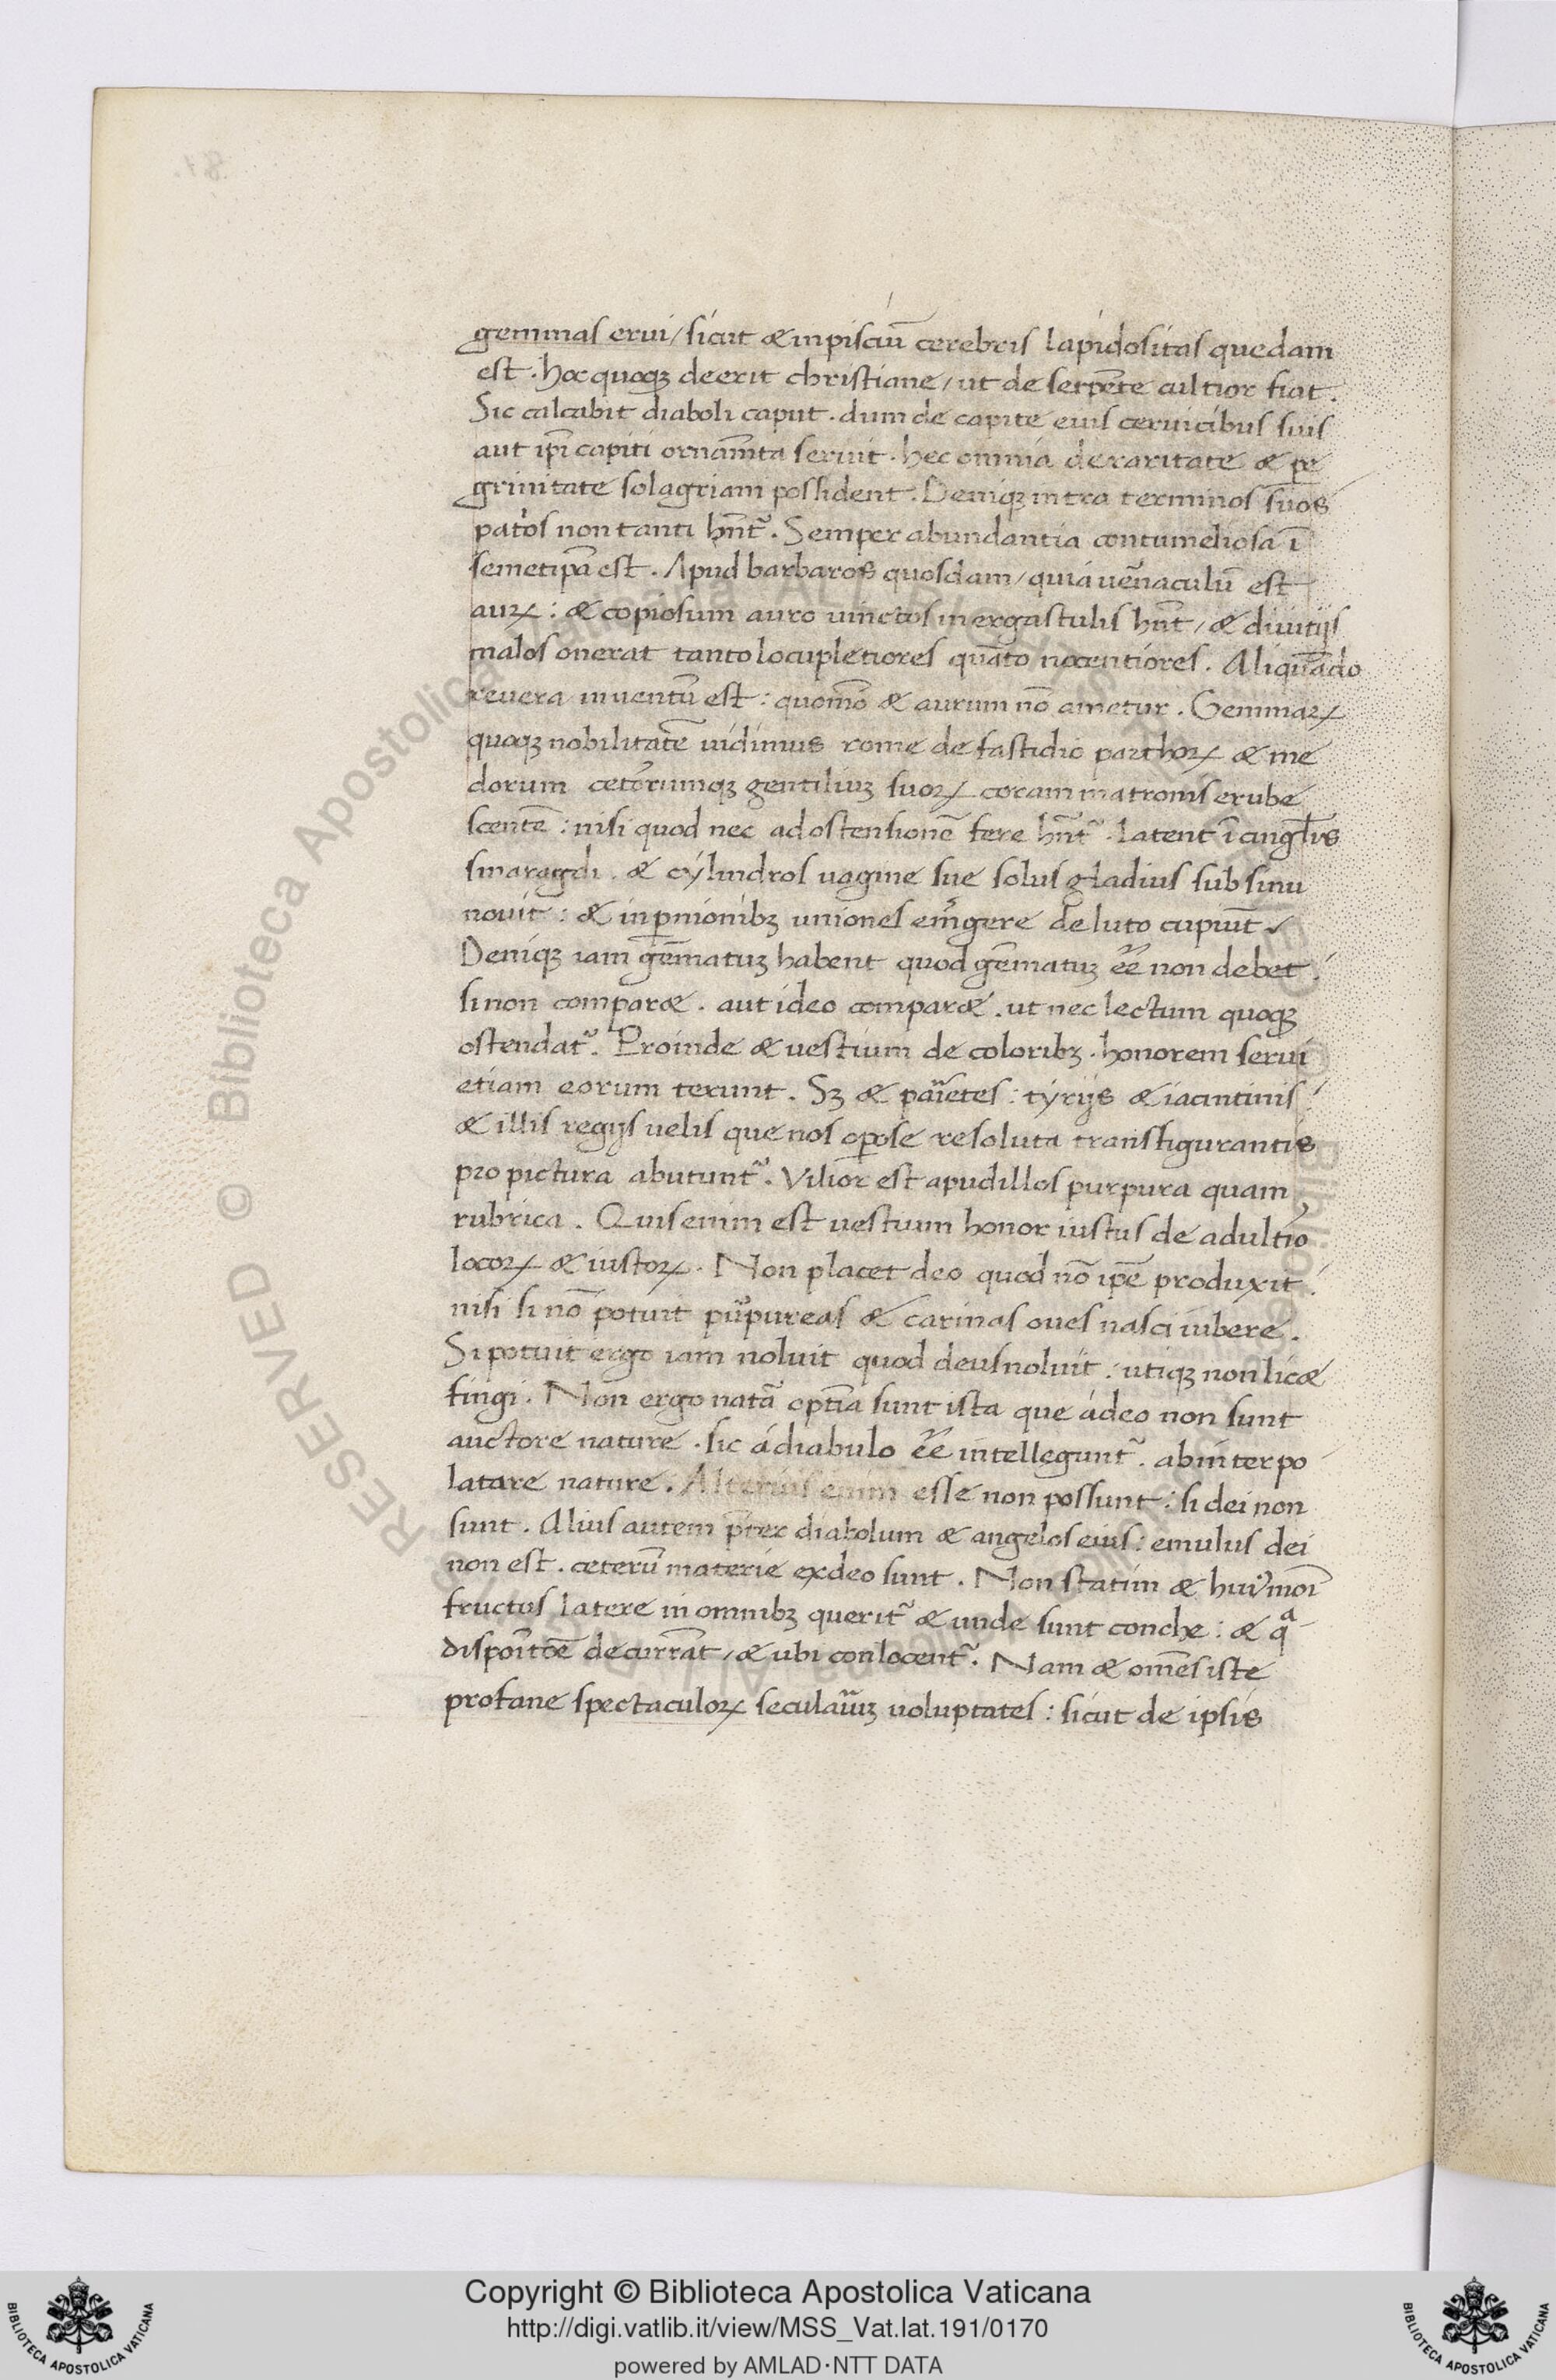 gemmas erui / sicut & in pisciū cerebris lapidositas quedam
est . hoc quoqꝫ deerit christiane / ut de serpēte cultior fiat .
Sic calcabit diaboli caput . dum de capite eius ceruicibus suis
aut ip̄i capiti ornam̄ta seruit . hec omnia de raritate & pe
grinitate sola gr̄iam possident . Deniqꝫ intra terminos suos
patⁱos non tanti hn̄t᷑ . Semper abundantia contumeliosa ī
semetip̄a est . Apud barbaros quosdam / quia uēnaculū est
auꝝ : & copiosum auro uinctos in ergastulis hn̄t / & diuitijs
malos onerat tanto locupletiores quāto nocentiores . Aliquādo
reuera inuentū est : quom̄o & aurum nō ametur . Gemmaꝝ
quoqꝫ nobilitatē uidimus rome de fastidio parthoꝝ & me
dorum cet̄orumqꝫ gentiliuꝫ suoꝝ coram matronis erube
scentē : nisi quod nec ad ostensionē fere hn̄t᷑ . latent ī cingl̄is
smaragdi . & cylindros uagine sue solus gladius sub sinu
nouit : & in pernionibꝫ uniones em̄gere de luto cupiūt
Deniqꝫ iam gēmatuꝫ habent quod gēmatuꝫ ēē non debet .
si non comparet . aut ideo comparet . ut neclectum quoqꝫ
ostendat᷑ . Proinde & uestium de coloribꝫ . honorem serui
etiam eorum terunt . Sꝫ & parietes : tyrijs & iacintinis
& illis regijs uelis que nos oꝑose resoluta transfigurantis
pro pictura abutunt᷑ . Vilior est apud illos purpura quam
rubrica . Quis enim est uestium honor iustus de adultio
locoꝝ & iustoꝝ . Non placet deo quod nō ip̄e produxit .
nisi si nō potuit purpureas & carinas oues nasci iubere .
Si potuit ergo iam noluit quod deus noluit : utiqꝫ non licet
fingi . Non ergo natā optīa sunt ista que á deo non sunt
auctore nature . sic á diabulo ēē intellegunt᷑ . ab interpo
latare nature . Alterius enim esse non possunt : si dei non
sunt . Alius autem p̄ter diabolum & angelos eius : emulus dei
non est . ceterū materie ex deo sunt . Non statim & hui᷑moī
fructus latere in omnibꝫ querit᷑ & unde sunt conche : & qᵃ
dispoītōe decurrāt / & ubi conlocent᷑ . Nam & om̄es iste
profane spectaculoꝝ seculariuꝫ uoluptates : sicut de ipsis
Copyright © Biblioteca Apostolica Vaticana
http://digi.vatlib.it/view/MSS_Vat.lat.191/0170
powered by AMLAD·NTT DATA